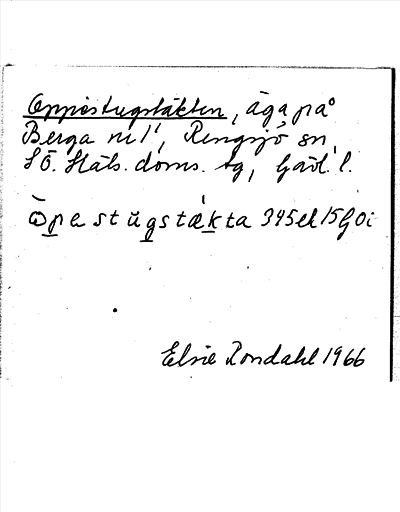 Oppistugstäkten, äga på
Berga nr 1, Rengsjö sn,
SÖ. Häls. doms. tg, Gävl. l.
öpestùgstækta 345ek15G0i
Elsie Rondahl 1966